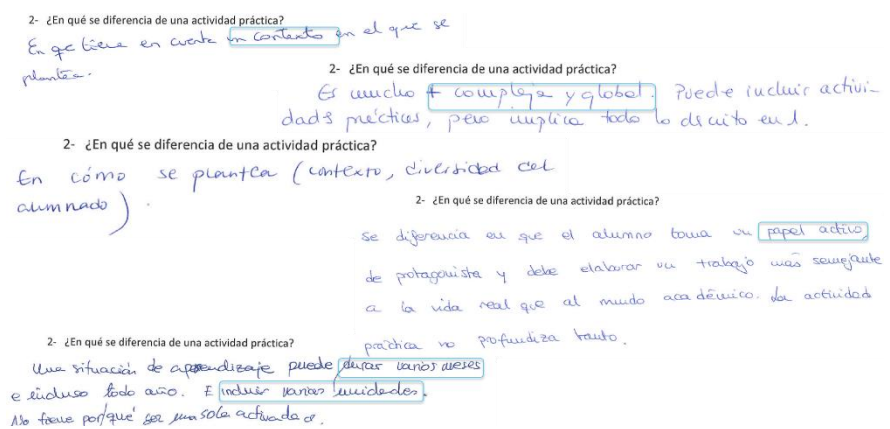 2- ¿En qué se diferencia de una actividad práctica?
En qe tiene en cuenta un contexto en el que se
plantea.
2- ¿En qué se diferencia de una actividad práctica?
Es mucho + compleja y global. Puede incluir activi-
dads prácticas, pero implica todo lo dscrito en 1.
2- ¿En qué se diferencia de una actividad práctica?
En cómo se plantea (contexto, diversidad del
alumnado).
2- ¿En qué se diferencia de una actividad práctica?
Se diferencia en que el alumno toma un papel activo,
de protagonista y debe elaborar un trabajo más semejante
a la vida real que al mundo académico. La actividad
práctica no profundiza tanto.
2- ¿En qué se diferencia de una actividad práctica?
Una situación de aprendizaje puede durar varios meses
e incluso todo año. E incluir varias unidades.
No tiene porqué ser una sola actividad.